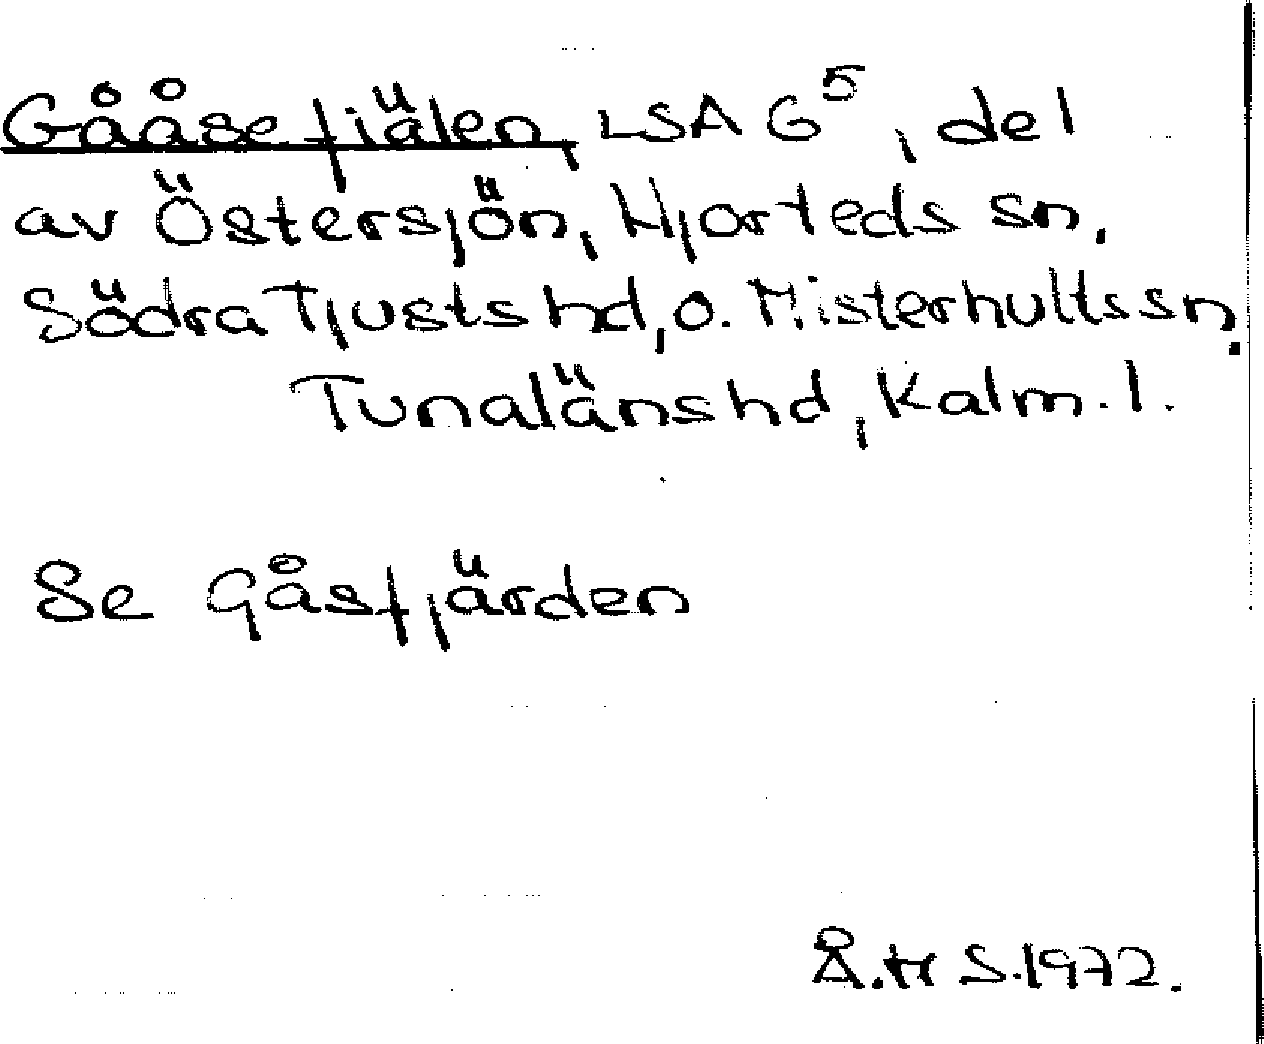 Gååsefiälen, LSA G⁵, del
av Östersjön, Hjorteds sn,
Södra Tjusts hd, o. Misterhults sn,
Tunaläns hd, Kalm. l.
Se Gåsfjärden
Å. H S. 1972.